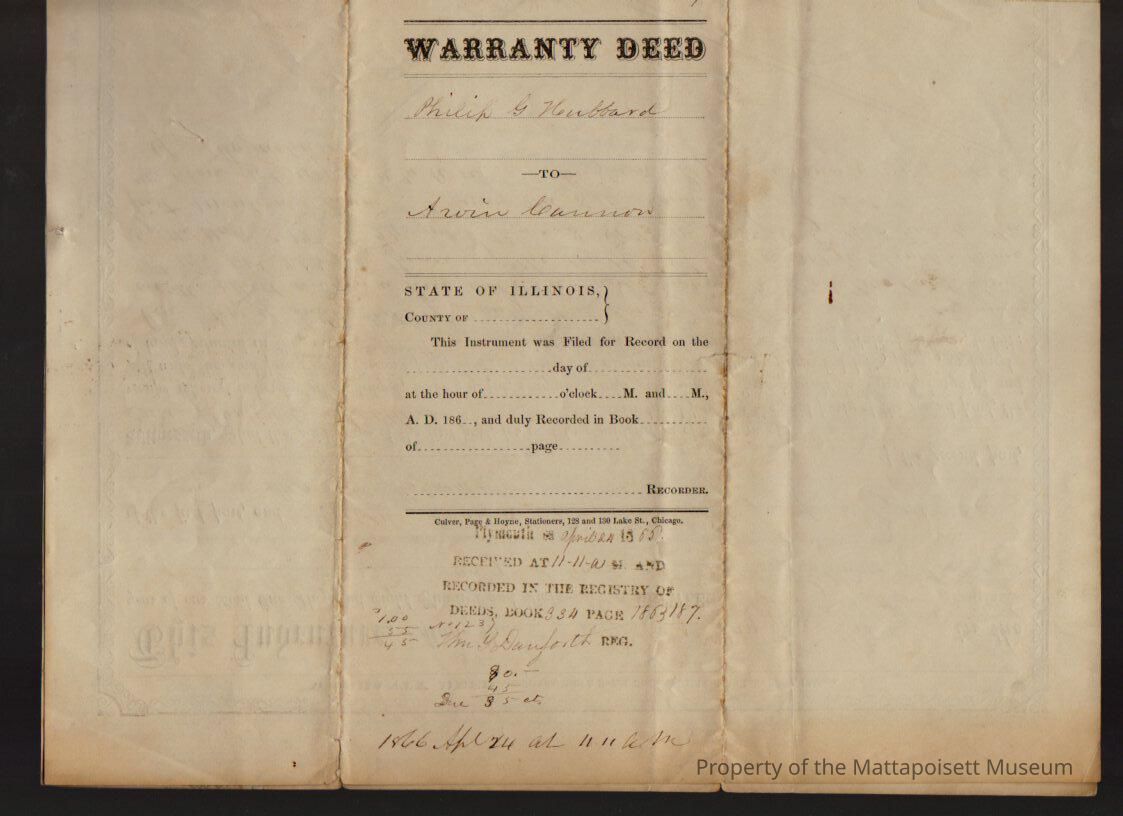 WARRANTY DEED
Philip G Hubbard
—TO—
Arvin Cannon
STATE OF ILLINOIS,
COUNTY OF
This Instrument was Filed for Record on the
day of
at the hour of o'clock M. and M.,
A. D. 186 , and duly Recorded in Book
of page
RECORDER.
Culver, Page & Hoyne, Stationers, 128 and 130 Lake St., Chicago.
Plymouth ss April 24 18
RECEIVED AT 11-11-A M. AND
RECORDED IN THE REGISTRY OF
DEEDS, BOOK 334 PAGE
1.00
55
45
Wm S Danforth REG.
80.
45
Due 35 cts
1866 Apl 24 at 11 11 a m
Property of the Mattapoisett Museum